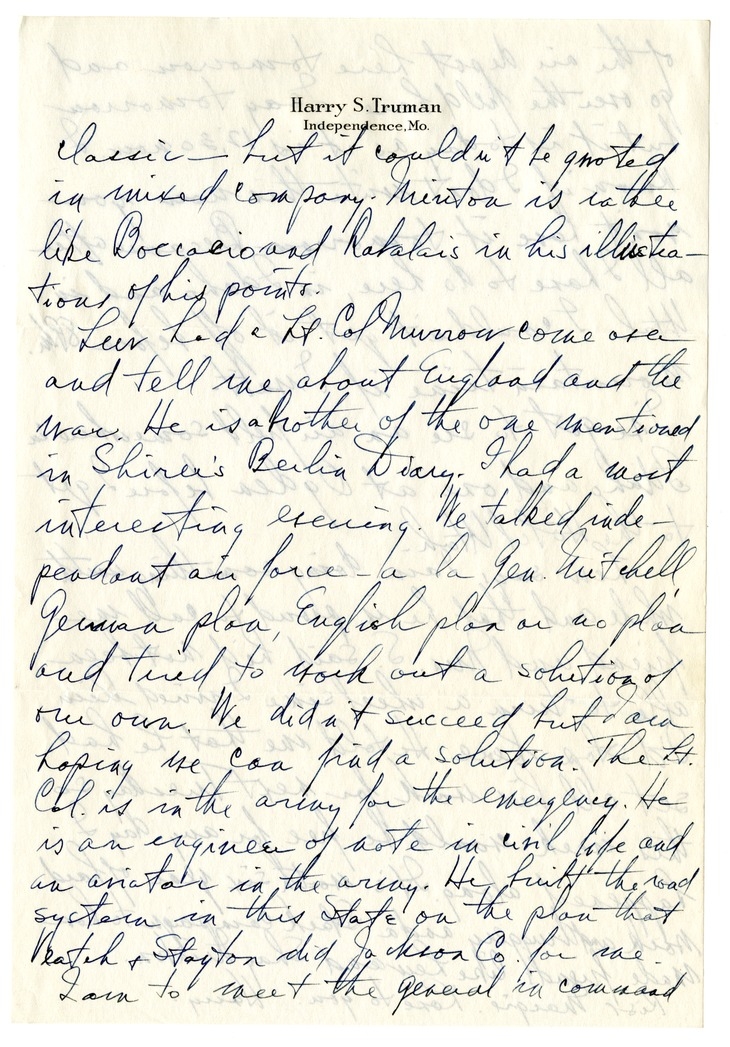 Harry S. Truman
Independence, Mo.
classic — but it couldn't be quoted
in mixed company. Minton is rather
like Boccacio and Rabalais in his illustra-
tions of his points.
Lew had a Lt. Col Murrow come over
and tell me about England and the
war. He is a brother of the one mentioned
in Shirer's Berlin Diary. I had a most
interesting evening. We talked inde-
pendant air force - a la Gen. Mitchell,
German plan, English plan or no plan
and tried to work out a solution of
our own. We didn't succeed but I am
hoping we can find a solution. The Lt.
Col. is in the army for the emergency. He
is an engineer of note in civil life and
an aviator in the army. He built the road
system in this State on the plan that
Veatch & Stayton did Jackson Co. for me.
I am to meet the general in command